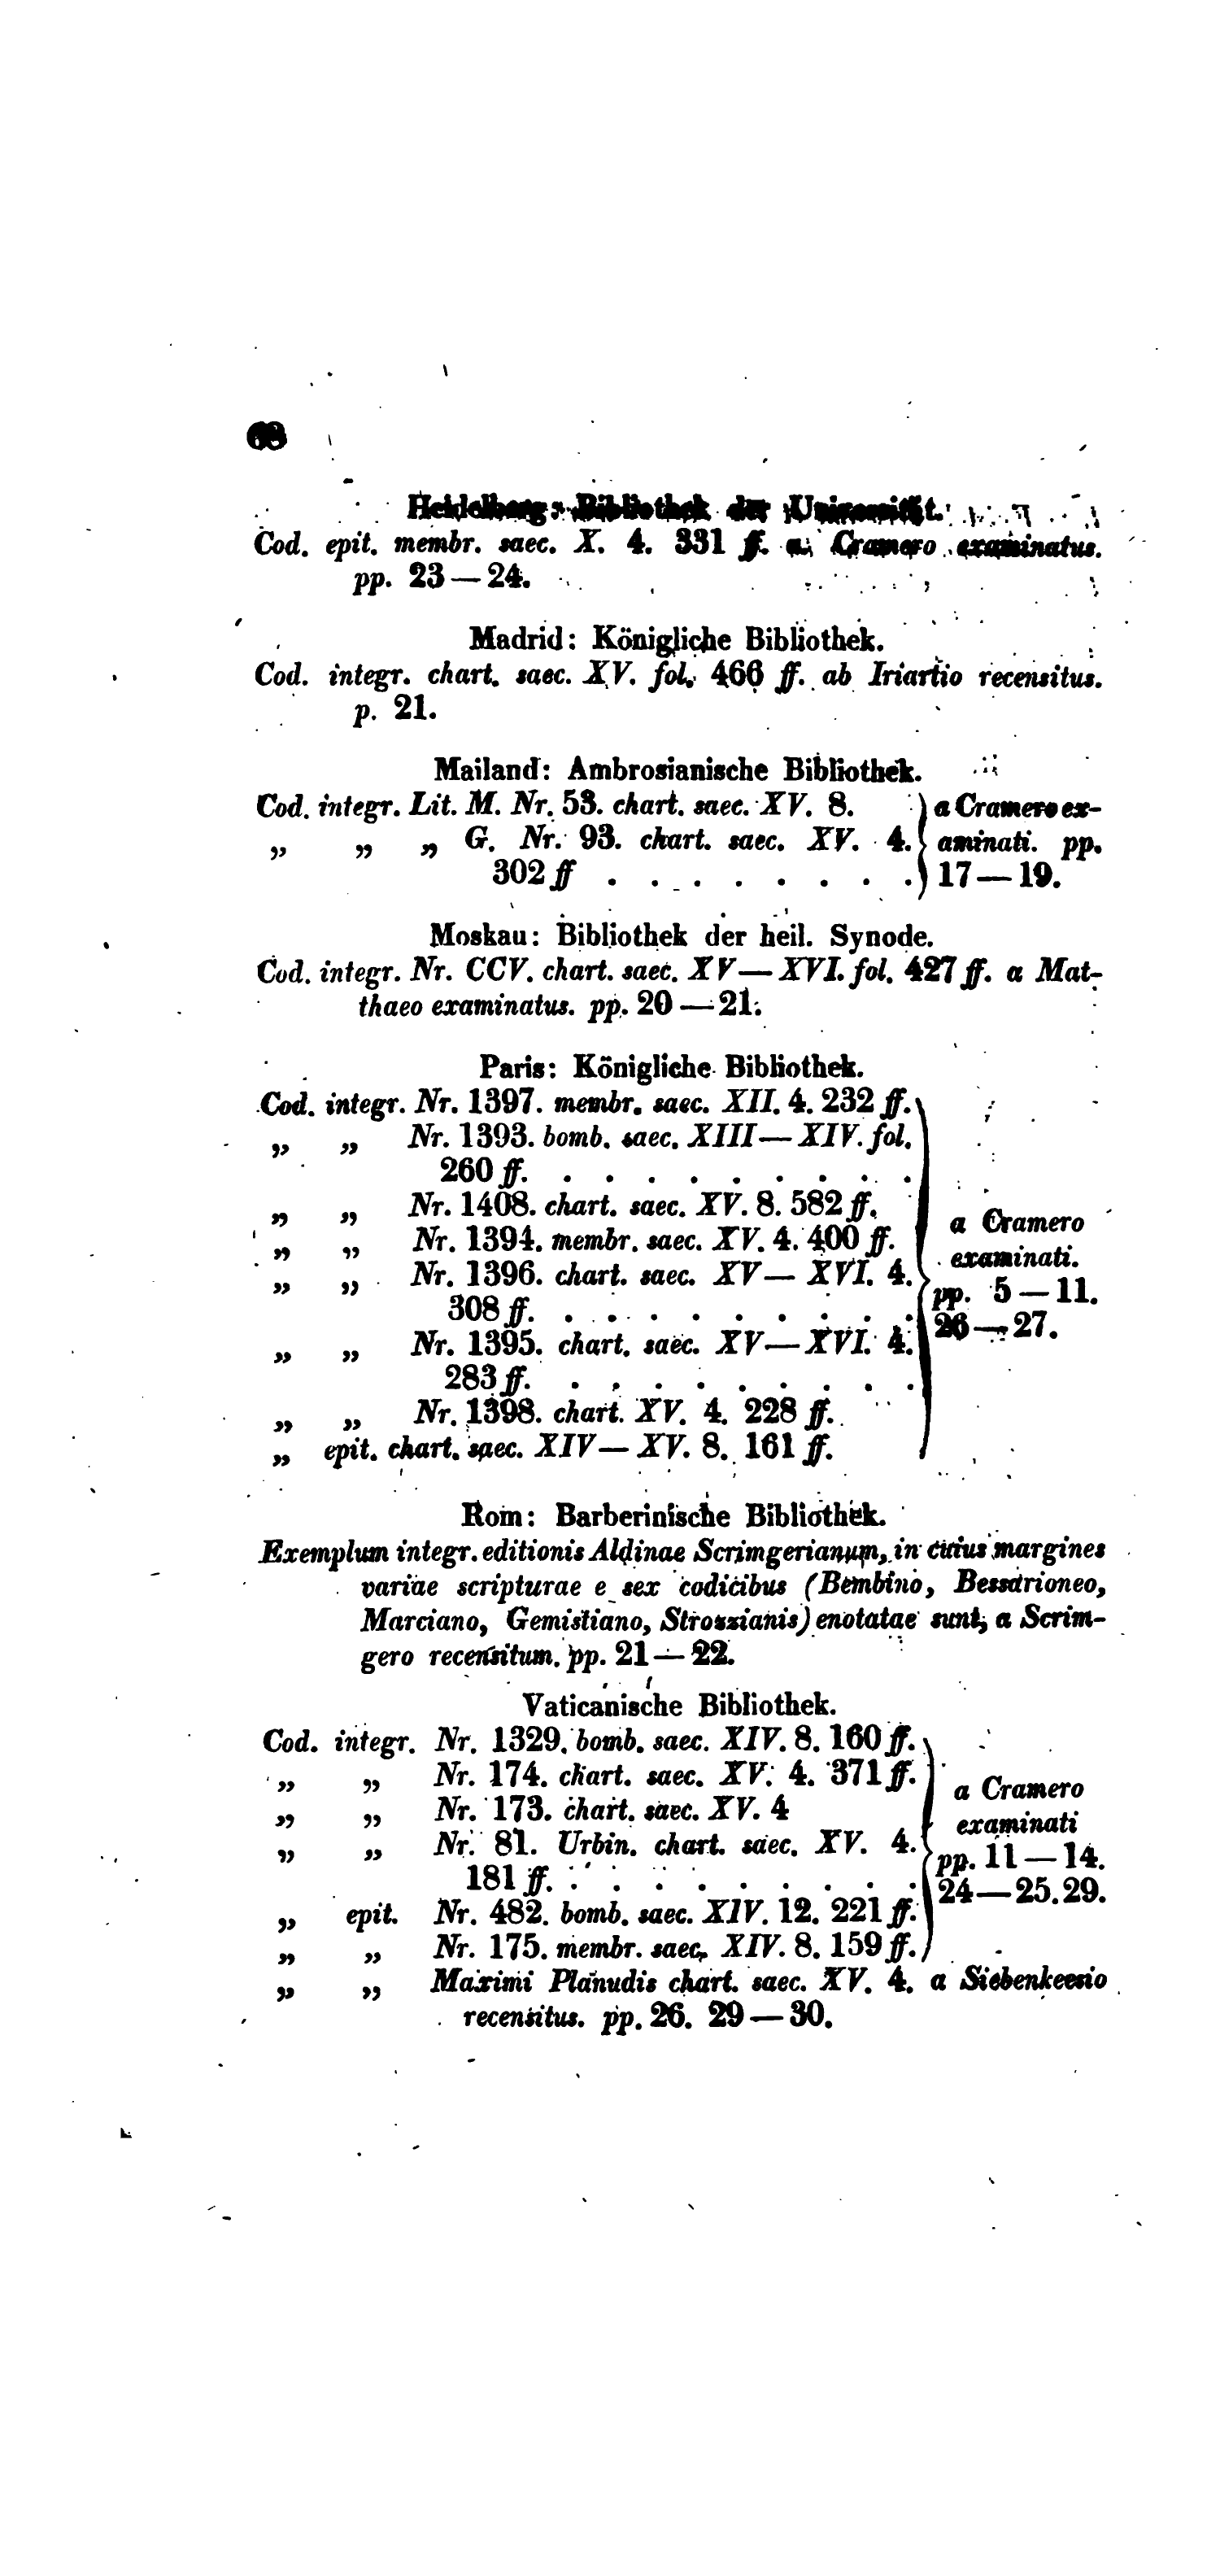 68
Heidelberg: Bibliothek der Universität.
Cod. epit. membr. saec. X. 4. 331 ff. a Cramero examinatus.
pp. 23 — 24.
Madrid: Königliche Bibliothek.
Cod. integr. chart. saec. XV. fol. 466 ff. ab Iriartio recensitus.
p. 21.
Mailand: Ambrosianische Bibliothek.
Cod. integr. Lit. M. Nr. 53. chart. saec. XV. 8.
„ „ „ G. Nr. 93. chart. saec. XV. 4.
302 ff . . . . . . . .
a Cramero ex-
aminati. pp.
17 — 19.
Moskau: Bibliothek der heil. Synode.
Cod. integr. Nr. CCV. chart. saec. XV — XVI. fol. 427 ff. a Mat-
thaeo examinatus. pp. 20 — 21.
Paris: Königliche Bibliothek.
Cod. integr. Nr. 1397. membr. saec. XII. 4. 232 ff.
„ „ Nr. 1393. bomb. saec. XIII — XIV. fol.
260 ff. . . . . . . . . .
„ „ Nr. 1408. chart. saec. XV. 8. 582 ff.
„ „ Nr. 1394. membr. saec. XV. 4. 400 ff.
„ „ Nr. 1396. chart. saec. XV — XVI. 4.
308 ff. . . . . . . . . .
„ „ Nr. 1395. chart. saec. XV — XVI. 4.
283 ff. . . . . . . . . .
„ „ Nr. 1398. chart. XV. 4. 228 ff.
„ epit. chart. saec. XIV — XV. 8. 161 ff.
a Cramero
examinati.
pp. 5 — 11.
26 — 27.
Rom: Barberinische Bibliothek.
Exemplum integr. editionis Aldinae Scrimgerianum, in cuius margines
variae scripturae e sex codicibus (Bembino, Bessarioneo,
Marciano, Gemistiano, Strozzianis) enotatae sunt, a Scrim-
gero recensitum. pp. 21 — 22.
Vaticanische Bibliothek.
Cod. integr. Nr. 1329. bomb. saec. XIV. 8. 160 ff.
„ „ Nr. 174. chart. saec. XV. 4. 371 ff.
„ „ Nr. 173. chart. saec. XV. 4
„ „ Nr. 81. Urbin. chart. saec. XV. 4.
181 ff. . . . . . . . . .
„ epit. Nr. 482. bomb. saec. XIV. 12. 221 ff.
„ „ Nr. 175. membr. saec. XIV. 8. 159 ff.
a Cramero
examinati
pp. 11 — 14.
24 — 25. 29.
„ „ Maximi Planudis chart. saec. XV. 4. a Siebenkeesio
recensitus. pp. 26. 29 — 30.